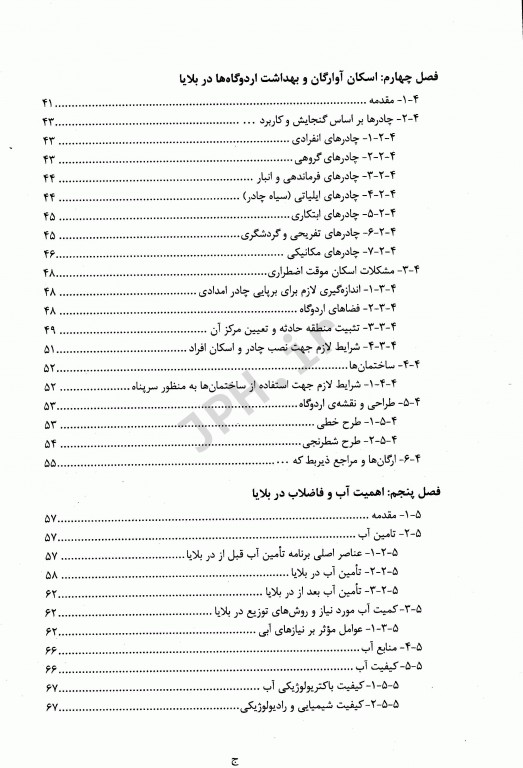 فصل چهارم: اسکان آوارگان و بهداشت اردوگاه‌ها در بلایا
۴-۱- مقدمه ........ ۴۱
۴-۲- چادرها بر اساس گنجایش و کاربرد ... ........ ۴۳
۴-۲-۱- چادرهای انفرادی ........ ۴۳
۴-۲-۲- چادرهای گروهی ........ ۴۳
۴-۲-۳- چادرهای فرماندهی و انبار ........ ۴۴
۴-۲-۴- چادرهای ایلیاتی (سیاه چادر) ........ ۴۴
۴-۲-۵- چادرهای ابتکاری ........ ۴۵
۴-۲-۶- چادرهای تفریحی و گردشگری ........ ۴۵
۴-۲-۷- چادرهای مکانیکی ........ ۴۶
۴-۳- مشکلات اسکان موقت اضطراری ........ ۴۸
۴-۳-۱- اندازه‌گیری لازم برای برپایی چادر امدادی ........ ۴۸
۴-۳-۲- فضاهای اردوگاه ........ ۴۸
۴-۳-۳- تثبیت منطقه حادثه و تعیین مرکز آن ........ ۴۹
۴-۳-۴- شرایط لازم جهت نصب چادر و اسکان افراد ........ ۵۱
۴-۴- ساختمان‌ها ........ ۵۲
۴-۴-۱- شرایط لازم جهت استفاده از ساختمان‌ها به منظور سرپناه ........ ۵۲
۴-۵- طراحی و نقشه‌ی اردوگاه ........ ۵۳
۴-۵-۱- طرح خطی ........ ۵۳
۴-۵-۲- طرح شطرنجی ........ ۵۴
۴-۶- ارگان‌ها و مراجع ذیربط که ... ........ ۵۵
فصل پنجم: اهمیت آب و فاضلاب در بلایا
۵-۱- مقدمه ........ ۵۷
۵-۲- تامین آب ........ ۵۷
۵-۲-۱- عناصر اصلی برنامه تأمین آب قبل از در بلایا ........ ۵۷
۵-۲-۲- تأمین آب در بلایا ........ ۵۸
۵-۲-۳- تأمین آب بعد از در بلایا ........ ۶۲
۵-۳- کمیت آب مورد نیاز و روش‌های توزیع در بلایا ........ ۶۲
۵-۳-۱- عوامل مؤثر بر نیازهای آبی ........ ۶۲
۵-۴- منابع آب ........ ۶۶
۵-۵- کیفیت آب ........ ۶۶
۵-۵-۱- کیفیت باکتریولوژیکی آب ........ ۶۷
۵-۵-۲- کیفیت شیمیایی و رادیولوژیکی ........ ۶۷
ج
JPH.ir